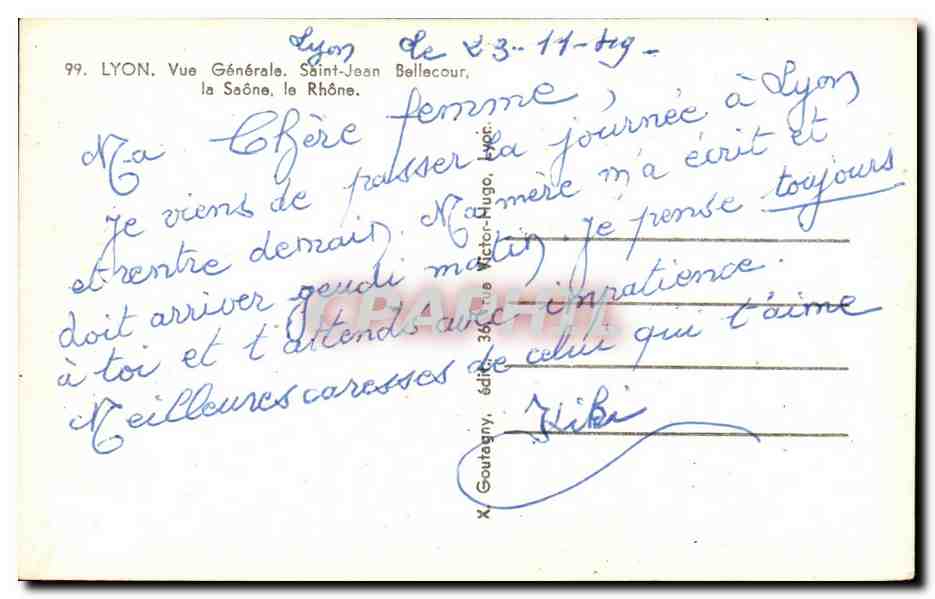 Lyon le 23-11-49-
99. LYON. Vue Générale. Saint-Jean Bellecour,
la Saône, le Rhône.
Ma Chère femme,
Je viens de passer la journée à Lyon
et rentre demain. Ma mère m'a écrit et
doit arriver jeudi matin. Je pense toujours
à toi et t'attends avec impatience.
Meilleures caresses de celui qui t'aime
Kiki
X. Goutagny, édit., 36, rue Victor-Hugo, Lyon.
CPARHIL